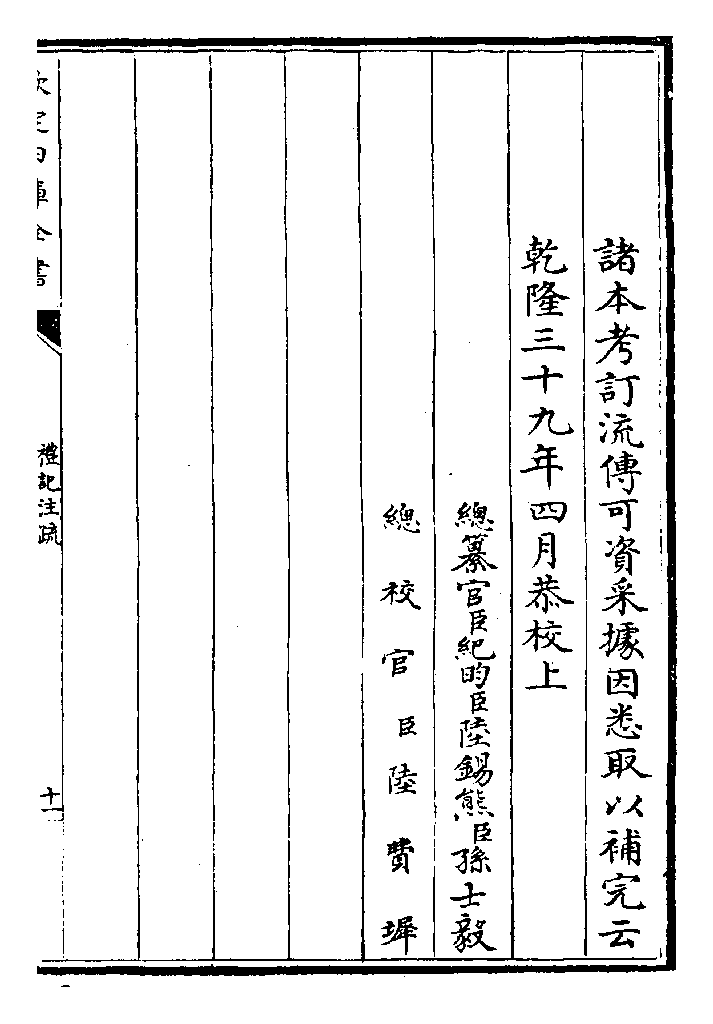 諸本考訂流傳可資采據因悉取以補完云
乾隆三十九年四月恭校上
總纂官臣紀昀臣陸錫熊臣孫士毅
總校官臣陸費墀
欽定四庫全書
禮記注疏
十一